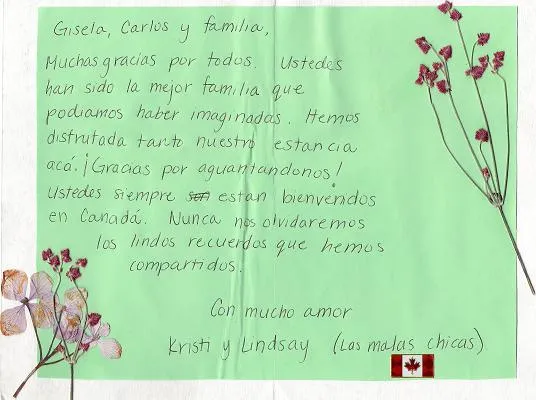 Gisela, Carlos y familia,
Muchas gracias por todos. Ustedes
han sido la mejor familia que
podiamos haber imaginadas. Hemos
disfrutada tanto nuestro estancia
acá. ¡Gracias por aguantandonos!
Ustedes siempre son estan bienvenidos
en Canadá. Nunca nos olvidaremos
los lindos recuerdos que hemos
compartidos.
Con mucho amor
Kristi y Lindsay (Las malas chicas)